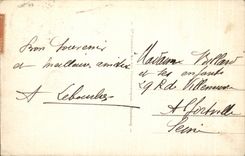 Bon Souvenir
et meilleures amitiés
A Lebomb
Madame Vollard
et ses enfants
29 Rd Villeneuve
Alfortville
Seine